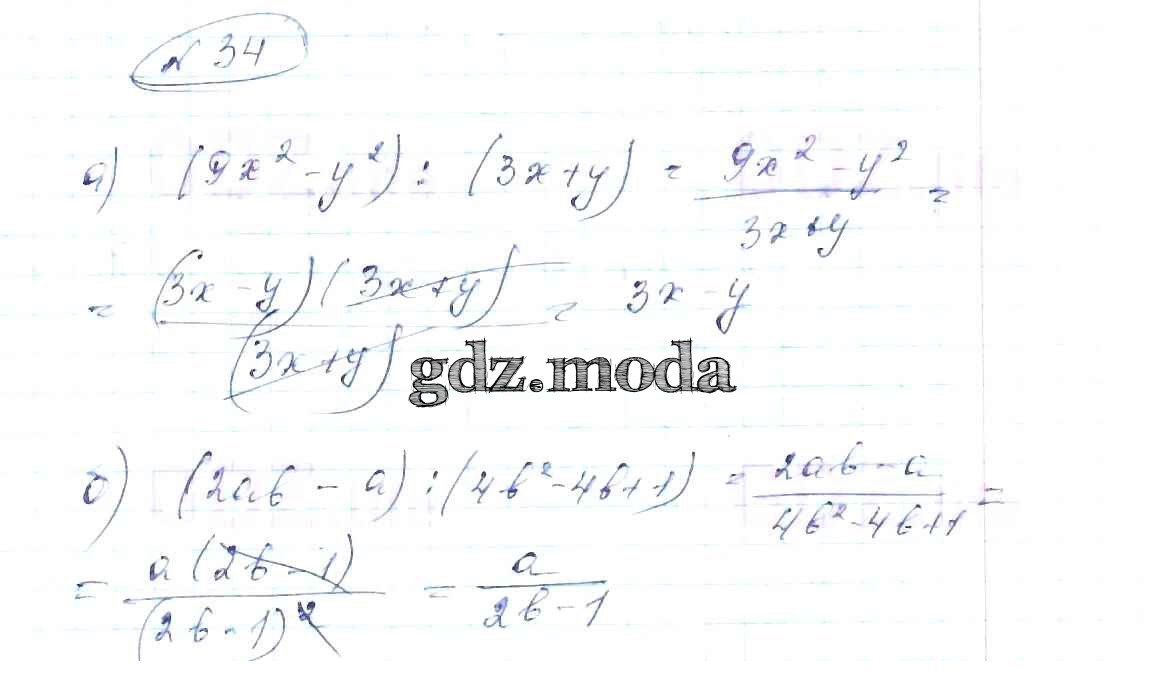 № 34
а) (9x² - y²) : (3x + y) = 9x² - y² / 3x + y =
= (3x - y)(3x + y) / (3x + y) = 3x - y
gdz.moda
б) (2ab - a) : (4b² - 4b + 1) = 2ab - a / 4b² - 4b + 1 =
= a(2b - 1) / (2b - 1)² = a / 2b - 1